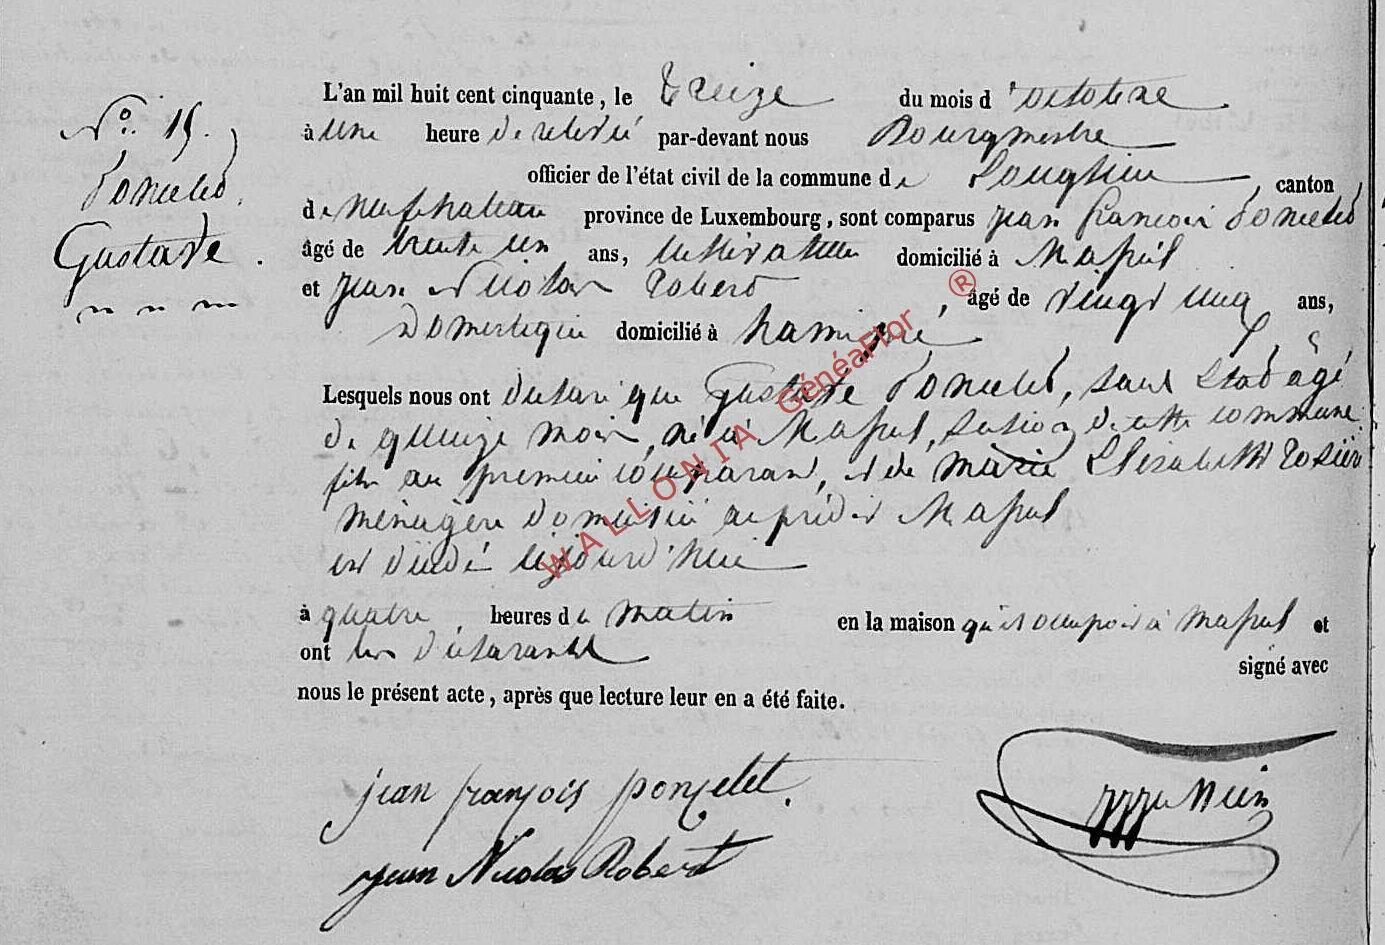 N° 15.
Poncelet
Gustave.
L'an mil huit cent cinquante, le treize du mois d'octobre
à une heure de relevé par-devant nous Bourgmestre
officier de l'état civil de la commune de Longlier, canton
de neufchateau province de Luxembourg, sont comparus jean francois Poncelet
âgé de trente un ans, cultivateur domicilié à Massul
et jean Nicolas Robert, âgé de vingt cinq ans,
Domestique domicilié à hamipré
Lesquels nous ont déclaré que Gustave Poncelet, sans Etat âgé
de quinze mois, né à Massul, section de cette commune
fils au premier comparant, et de marie Elisabeth Rosière
ménagère domicilié auprédit Massul
est décédé cejourd'hui
à quatre heures du matin en la maison qu'il occupoit à Massul et
ont les déclarants signé avec
nous le présent acte, après que lecture leur en a été faite.
jean françois ponçelet.
jean Nicolas Robert
WALLONIA GénéaFlor ®